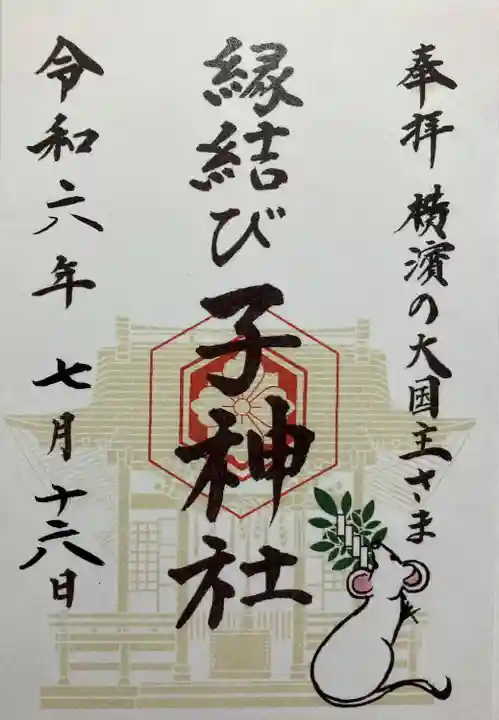 奉拝 横濱の大国主さま
縁結び 子神社
令和六年 七月十六日